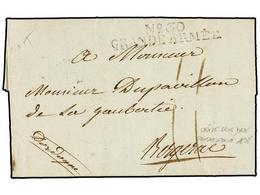 Nº 30
GRANDE ARMÉE
A Monsieur
Monsieur Dupavillon
de la gaubertie
Bergerac
Dordogne